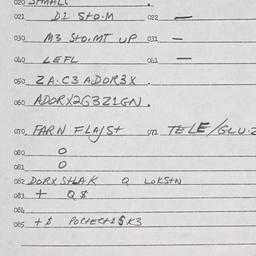 020 SMALL
021 DI StO.M 022 —
030 M3 StO,MT UP 031 —
040 LEFL 041 —
050 ZA.C3 ADOR3X
060 ADORX2G3Z1GN.
070 FARN FLAJSt 071 TELE/GLU.2
080 O
081 O
082 DORX StLAK Q LOKStN
083 + Q $
084
085 + $